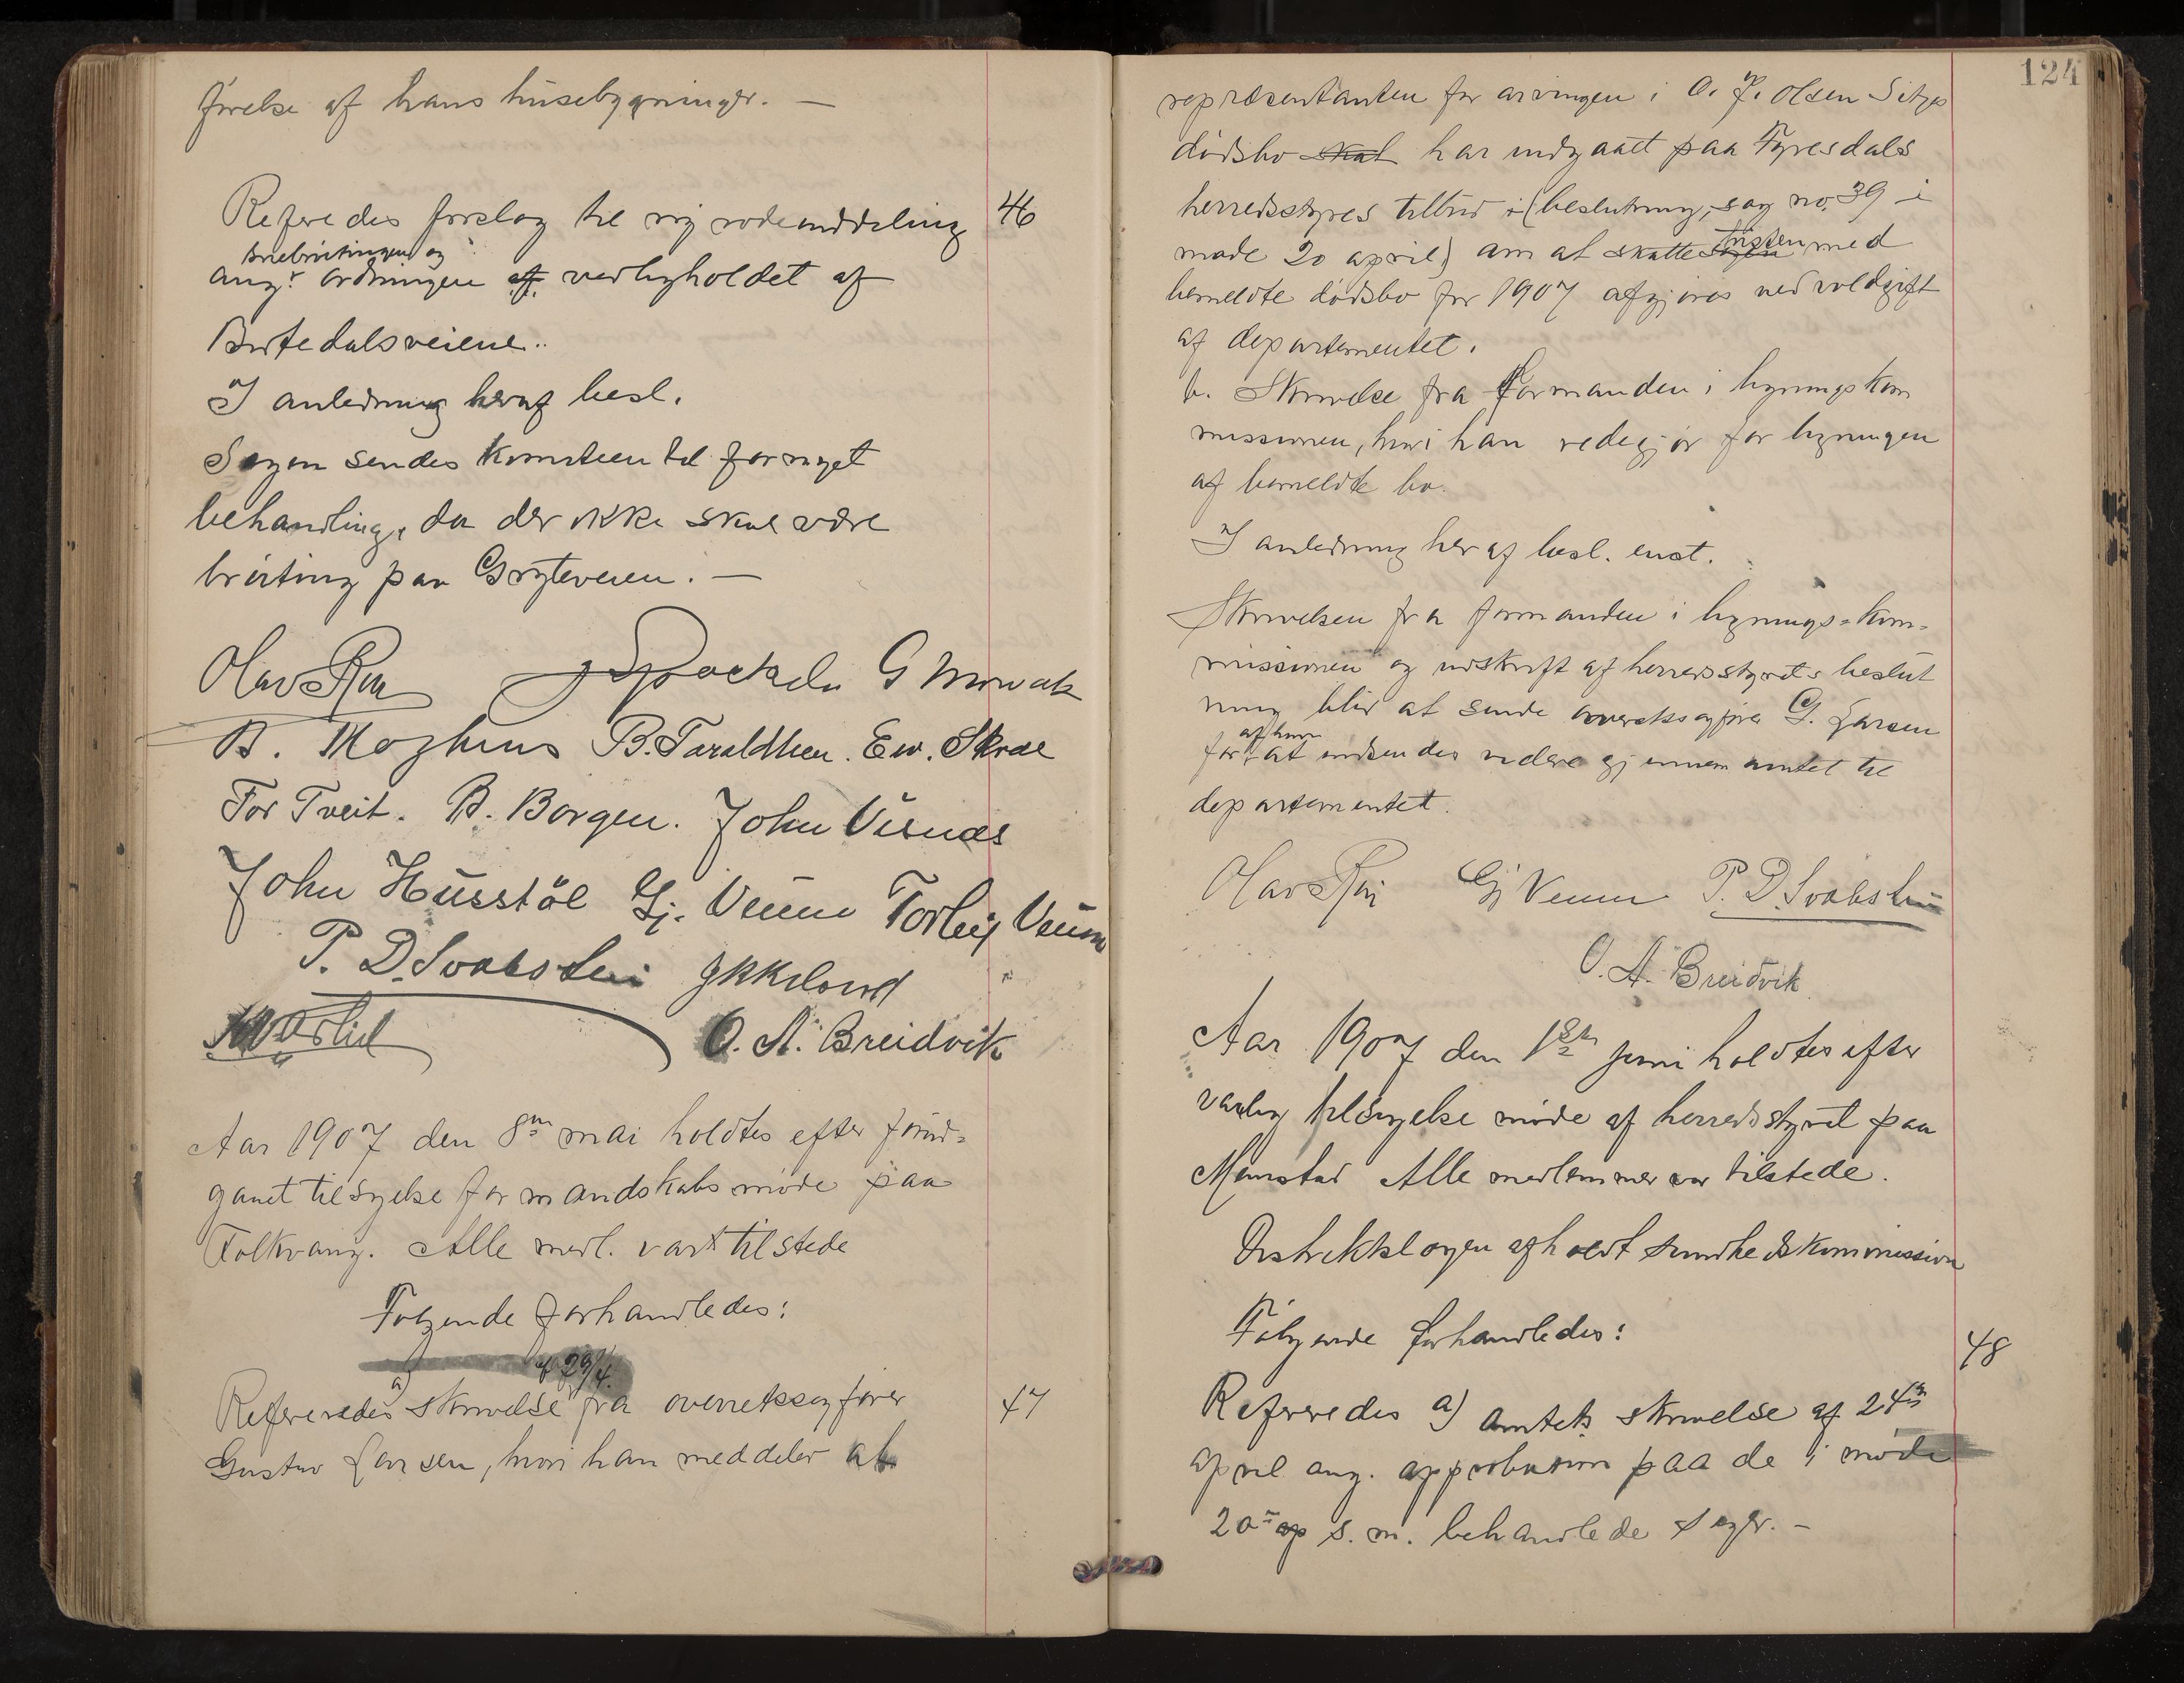 førelse af hans husebygninger. —
Refere des forslag til ny rodeinddeling 46
snebrøitingen og
ang. ordningen af vedligholdet af
Børtedalsveiene..
I anledning heraf besl.
Sagen sendes komiteen til fornyet
behandling, da der ikke skal være
brøiting paa Grøteveien. —
Olav G
B. B. Taraldlien. Ew. Skrae
Tor Tveit. B. Borgen. John Visnæs
John Husstøl Gj. Veum Torleif Veum
P. D. Svabstein
O. A. Breidvik
Aar 1907 den 8de mai holdtes efter forud-
ganet tilsyelse formandskabsmøde paa
Folkvang. Alle medl. var tilstede
Følgende forhandledes:
af 29/4.
a)
Refereredes skrivelse fra overretssagfører 47
Gustav Larsen, hvori han meddeler at
124
repræsentanten for arvingen i O. J. Olsen
dødsbo skat har indgaatt paa Fyresdals
herredsstyres tilbud i (beslutning, sag no. 39 i
tvisten
møde 20 april) om at skatte sagen med
bemeldte dødsbo for 1907 afgjøres ved voldgift
af departementet.
b. Skrivelse fra formanden i ligningskom
missionen, hvori han redegjør for ligningen
af bemeldte bo.
I anledning her af besl. enst.
Skrivelsen fra formanden i lignings-kom-
missionen og udskrift af herredsstyrets beslut
ning blir at sende overretssagfører G. Larsen
af ham
for at indsendes videre gjennem amtet til
departementet.
Olav Gj Veum P. D. Svabstein
O. A. Breidvik
Aar 1907 den 1ste juni holdtes efter
varlig tilsyelse møde af herredsstyret paa
Moenstad Alle medlemmer var tilstede.
Distriktslægen afholdt sundhedskommission
Følgende forhandledes: 48
Refereredes a) amtets skrivelse af 24de
april ang. approbation paa de i møde
20de ap s. m. behandlede sager. —